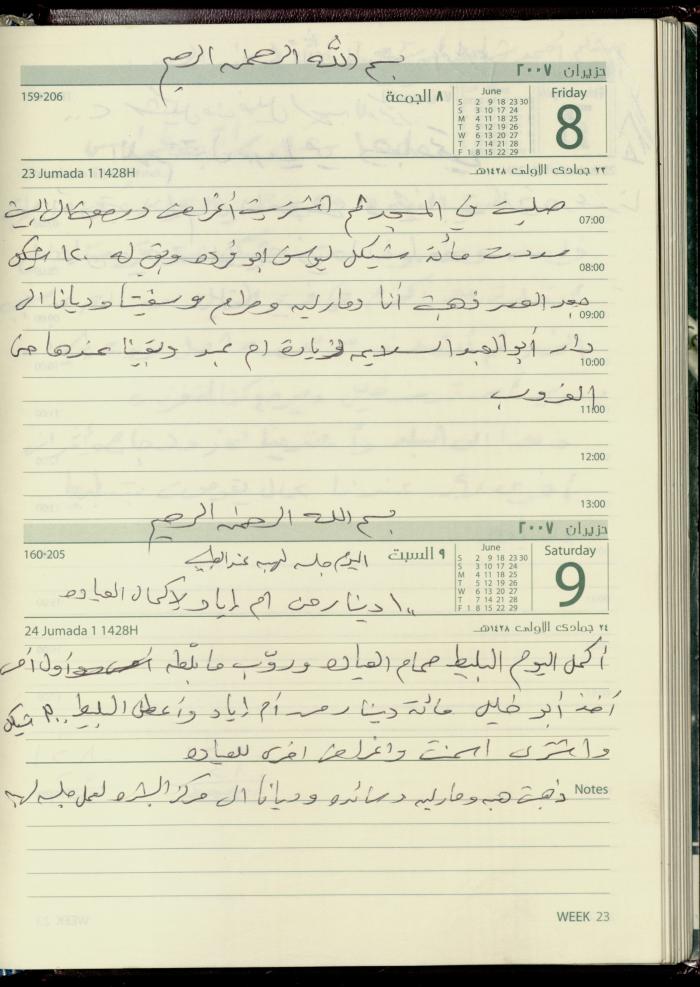 بسم الله الرحمن الرحيم
حزيران ٢٠٠٧
159-206
٨ الجمعة
June
S 2 9 16 23 30
S 3 10 17 24
M 4 11 18 25
T 5 12 19 26
W 6 13 20 27
T 7 14 21 28
F 1 8 15 22 29
Friday
8
23 Jumada 1 1428H
٢٣ جمادى الاولى ١٤٢٨هـ
صليت في المسجد ثم اشتريت أغراض للبيت
07:00
سددت مائة شيكل ليوسف ابو فرده وبقي له ١٢٠ شيكل
08:00
بعد العصر ذهبت أنا وماريه ومرام وديانا الى
09:00
دار أبو العبد لزيارة ام عبد وبقينا عندها حتى
10:00
الغروب
11:00
12:00
13:00
بسم الله الرحمن الرحيم
حزيران ٢٠٠٧
160-205
٩ السبت
اليوم جلسه لهبه عند الطبيب
June
S 2 9 16 23 30
S 3 10 17 24
M 4 11 18 25
T 5 12 19 26
W 6 13 20 27
T 7 14 21 28
F 1 8 15 22 29
Saturday
9
١٠٠ دينار من ام إياد لإكمال العياده
24 Jumada 1 1428H
٢٤ جمادى الاولى ١٤٢٨هـ
أكمل اليوم البليط حمام العياده وروّب ما بلّطه أول أمس
أخذ أبو خليل مائة دينار من أم إياد وأعطى البليط ٣٠٠ شيكل
واشترى اسمنت واغراض اخرى للعياده
Notes
ذهبت هبه وماريه وسائده وديانا الى مركز البشره لعمل جلسه لهبه
WEEK 23